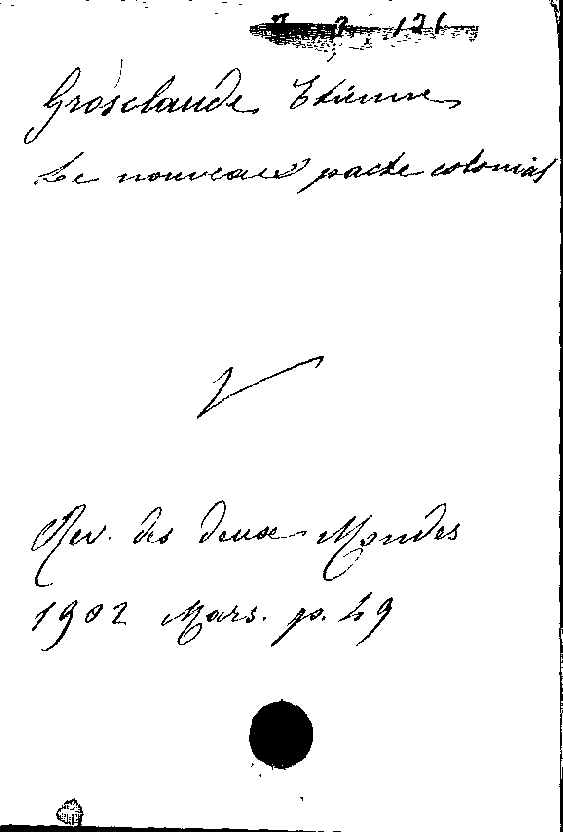 Grosclaude Etienne
Le nouveau pacte colonial
Rev. des deux Mondes
1902 Mars. p. 49